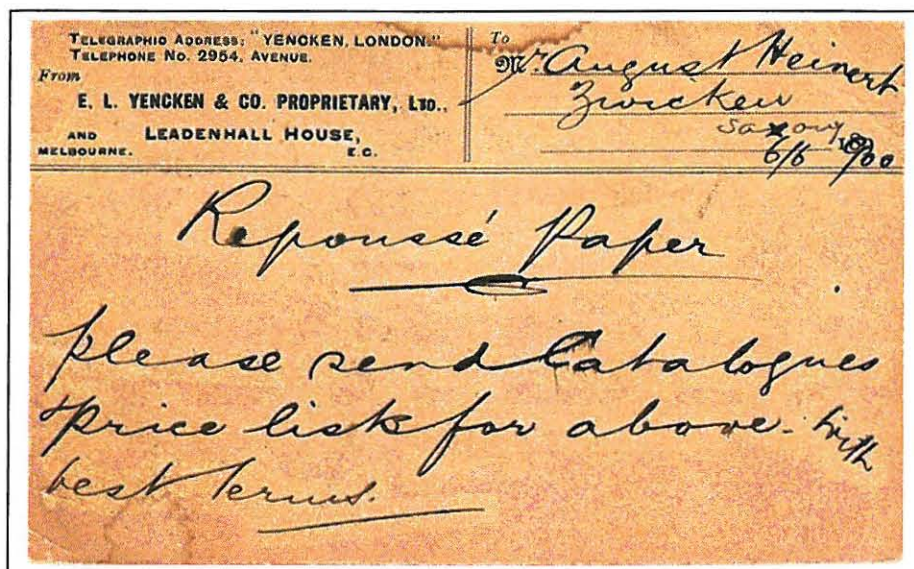 TELEGRAPHIC ADDRESS: "YENCKEN, LONDON."
TELEPHONE No. 2954, AVENUE.
From
E. L. YENCKEN & CO. PROPRIETARY, LTD.,
AND LEADENHALL HOUSE,
MELBOURNE. E.C.
To
Mr. August Heinert
Zwickau
Saxony
6/6 1900
Repoussé Paper
please send Catalogues
& price list for above. with
best terms.